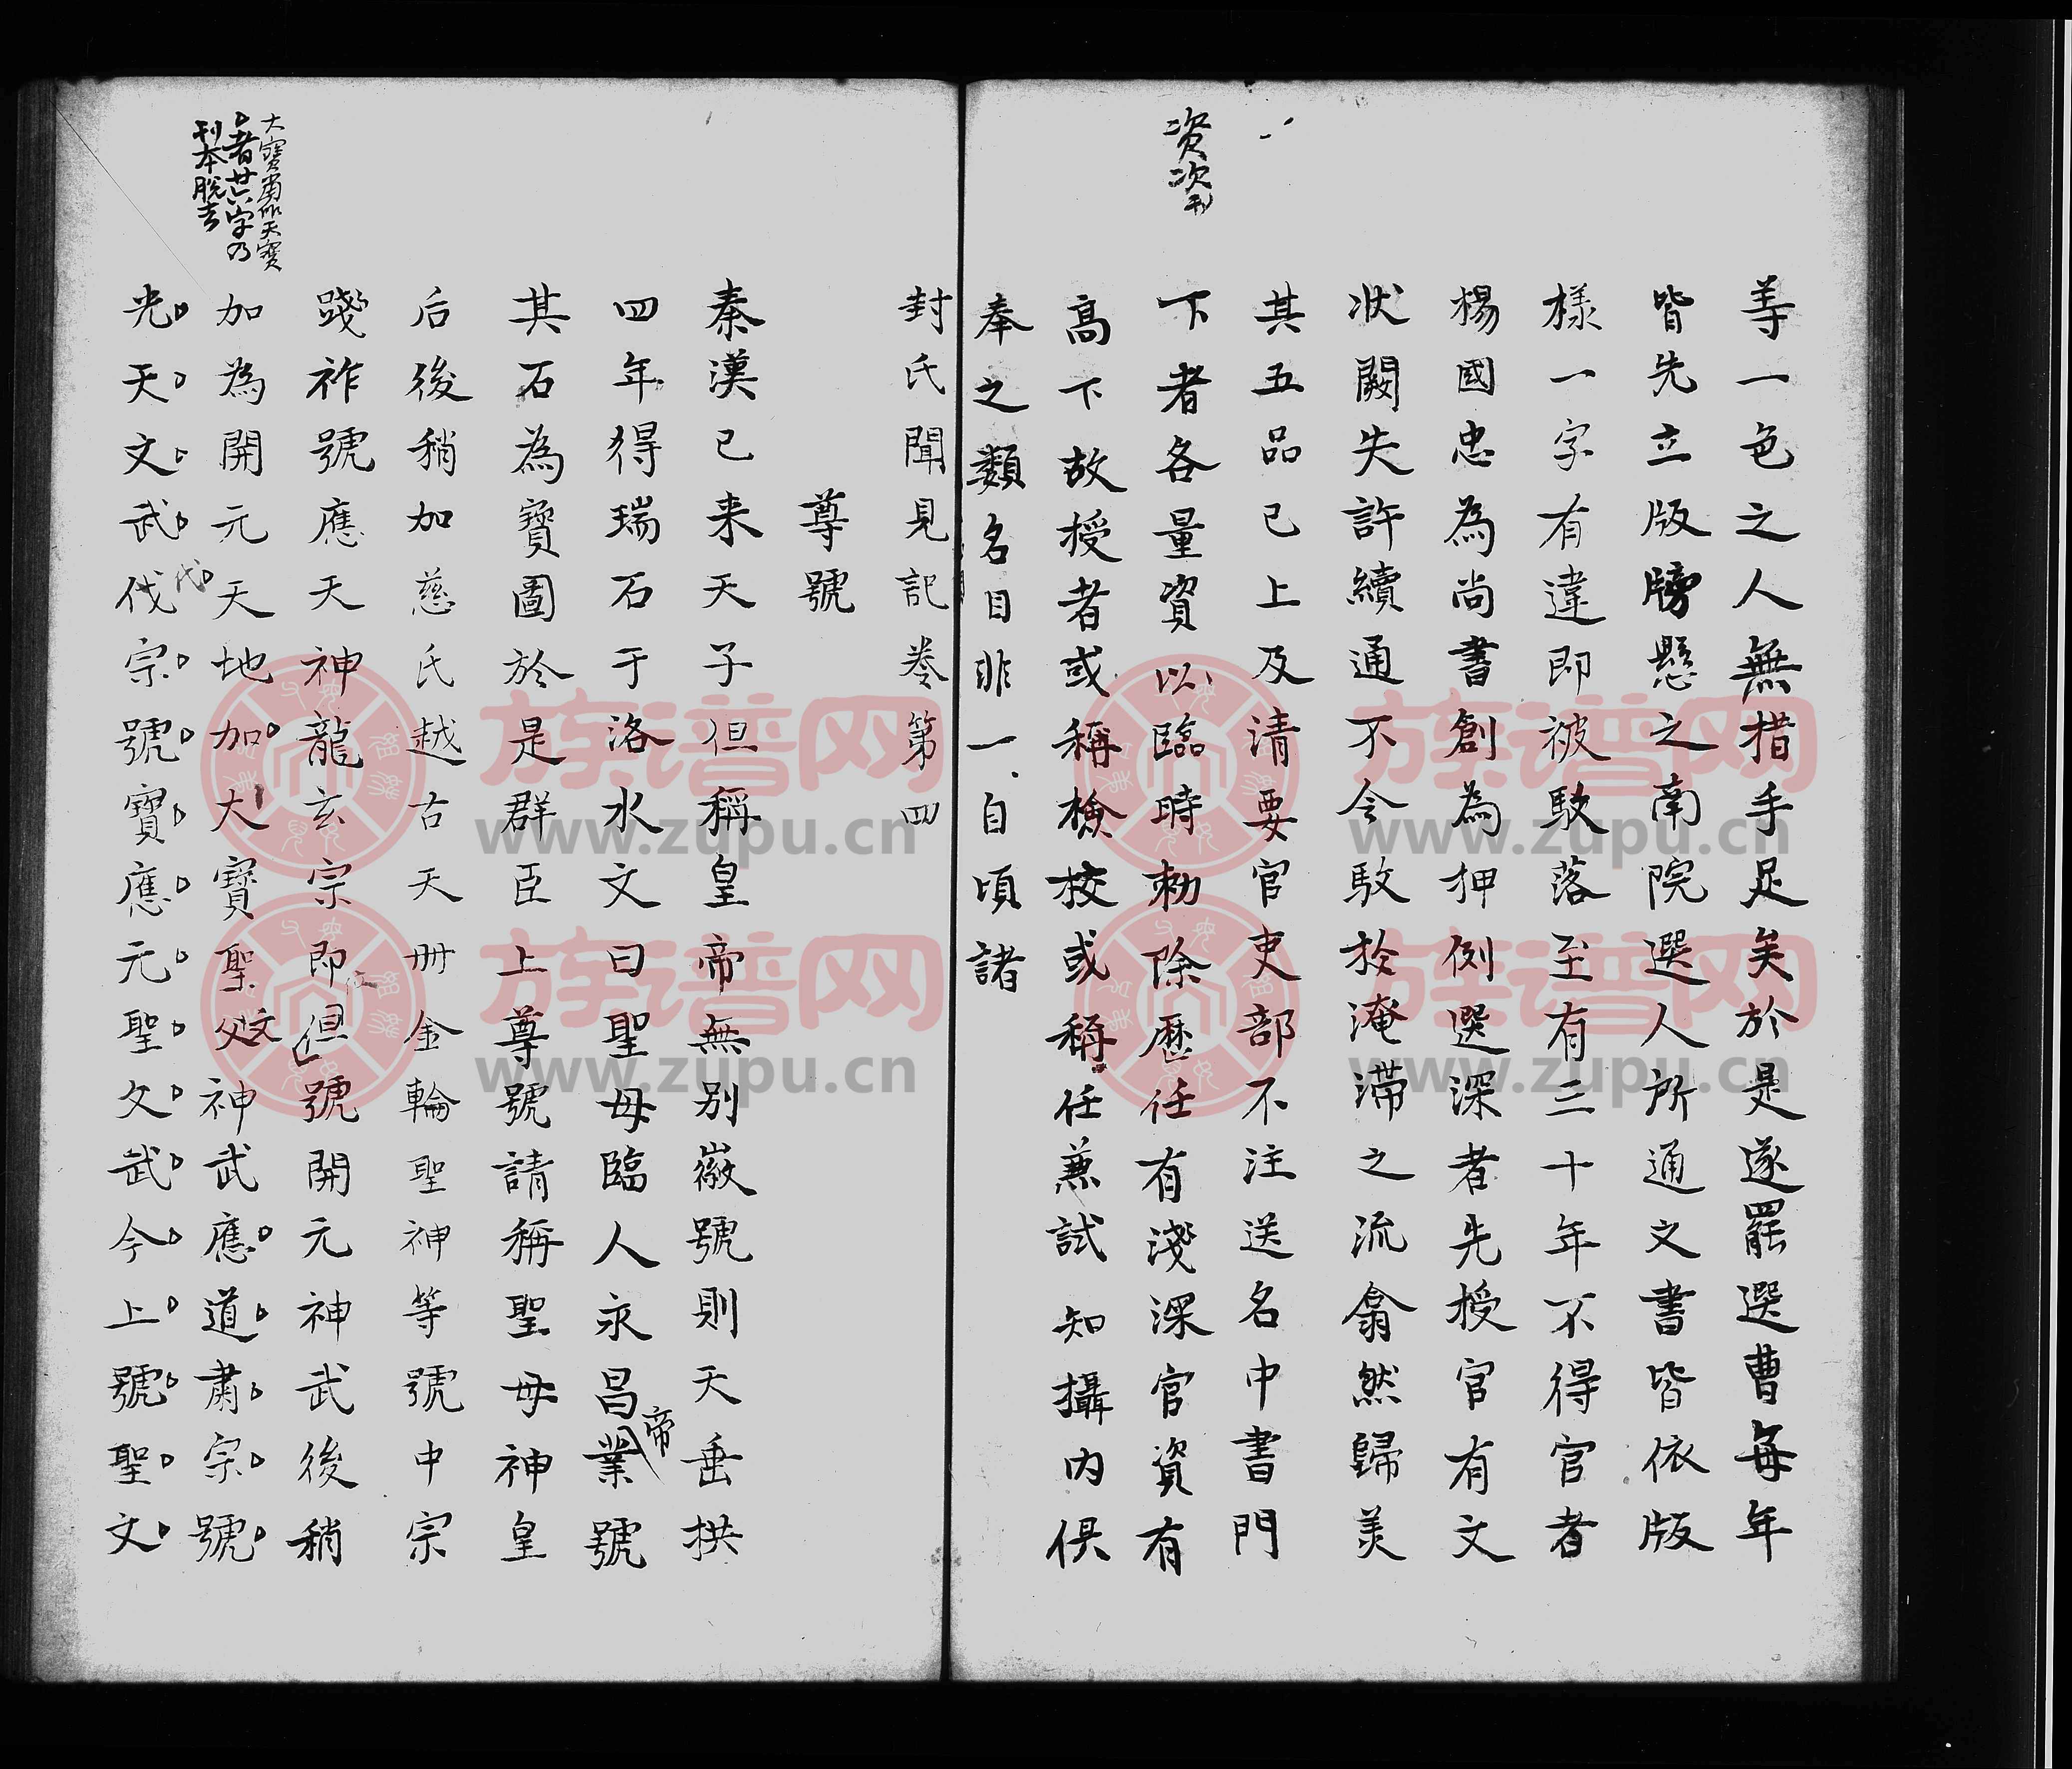 等一色之人無措手足矣於是遂罷選曹每年
皆先立版牓懸之南院選人所通文書皆依版
樣一字有違即被駁落至有三十年不得官者
楊國忠為尚書創為押例選深者先授官有文
狀闕失許續通不令駁於淹滯之流翕然歸美
其五品已上及清要官吏部不注送名中書門
下者各量資以臨時勅除歷任有淺深官資有
高下故授者或稱檢校或稱任兼試知攝內供
奉之類名目非一自頃諸
資次刊
封氏聞見記卷第四
尊號
秦漢已来天子但稱皇帝無別徽號則天垂拱
四年得瑞石于洛水文曰聖母臨人永昌業號
帝
其石為寶圖於是群臣上尊號請稱聖母神皇
后後稍加慈氏越古天冊金輪聖神等號中宗
踐祚號應天神龍玄宗即但號開元神武後稍
位
加為開元天地加大寶聖父神武應道肅宗號
文
光天文武伐宗號寶應元聖文武今上號聖文
代
大寶當作天寶
者廿六字乃
刊本脫去
族谱网
www.zupu.cn
族谱网
www.zupu.cn
族谱网
www.zupu.cn
族谱网
www.zupu.cn